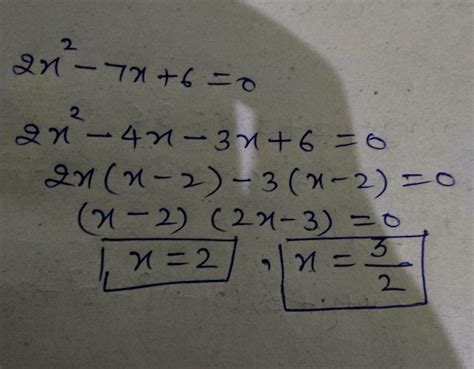 2x² - 7x + 6 = 0
2x² - 4x - 3x + 6 = 0
2x (x - 2) - 3 (x - 2) = 0
(x - 2) (2x - 3) = 0
x = 2 , x = 3/2